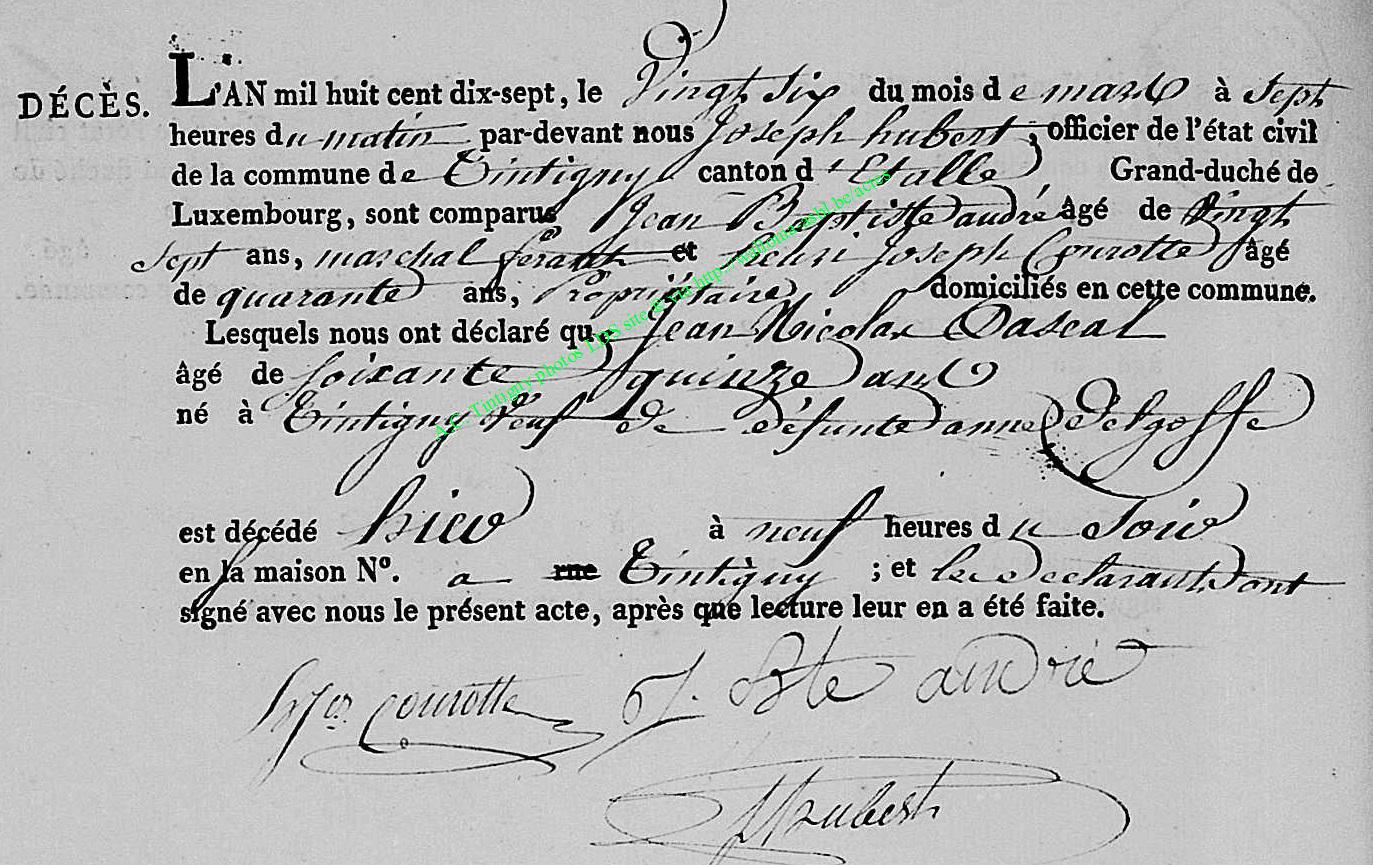 DÉCÈS. L'AN mil huit cent dix-sept, le Vingt Six du mois de mars à Sept
heures du matin par-devant nous Joseph hubert, officier de l'état civil
de la commune de Tintigny canton d'Etalle, Grand-duché de
Luxembourg, sont comparus Jean Baptiste andré âgé de Vingt
Sept ans, marchal ferant et henri Joseph Courotte âgé
de quarante ans, Propriétaire domiciliés en cette commune.
Lesquels nous ont déclaré que Jean Nicolas Pascal
âgé de Soixante quinze ans
né à Tintigny Veuf de défunte anne Delgoffe
est décédé hier à neuf heures du Soir
en la maison N°. a rue Tintigny ; et les Declarants ont
signé avec nous le présent acte, après que lecture leur en a été faite.
courotte J. Bte andré
Hubert
A.C. Tintigny photos LDS site & via http://wallonia.asbl.be/actes